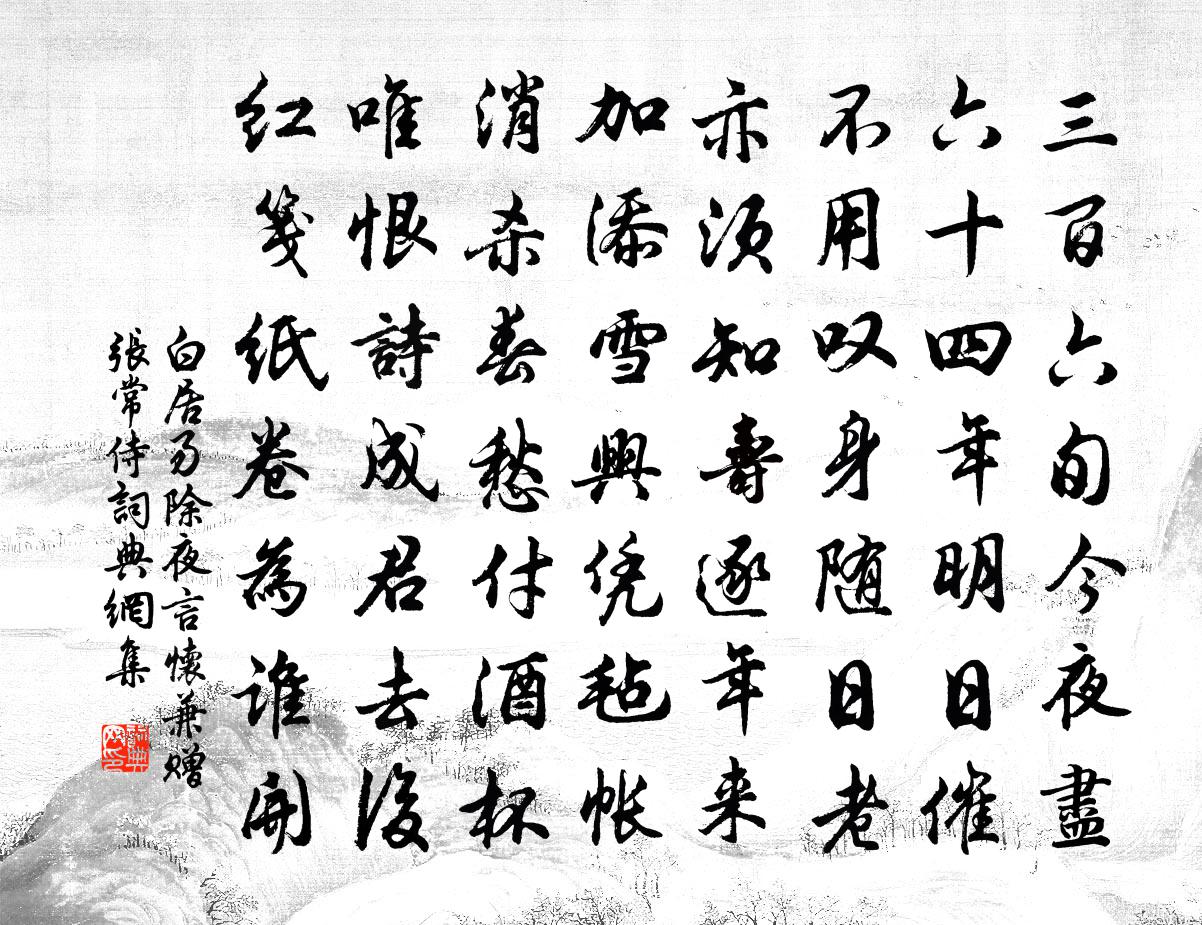 三百六旬今夜盡
六十四年明日催
不用叹身随日老
亦须知壽逐年来
加添雪興凭毡帐
消杀春愁付酒杯
唯恨詩成君去後
红笺纸卷為谁開
白居易除夜言懷兼赠
張常侍詞典網集